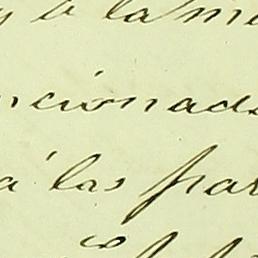 y á la m
ncionad
á las par